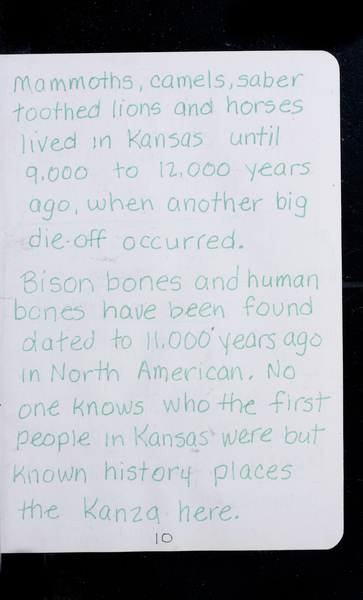 Mammoths, camels, saber
toothed lions and horses
lived in Kansas until
9,000 to 12,000 years
ago, when another big
die-off occurred.
Bison bones and human
bones have been found
dated to 11,000 years ago
in North American. No
one knows who the first
people in Kansas were but
known history places
the Kanza here.
10